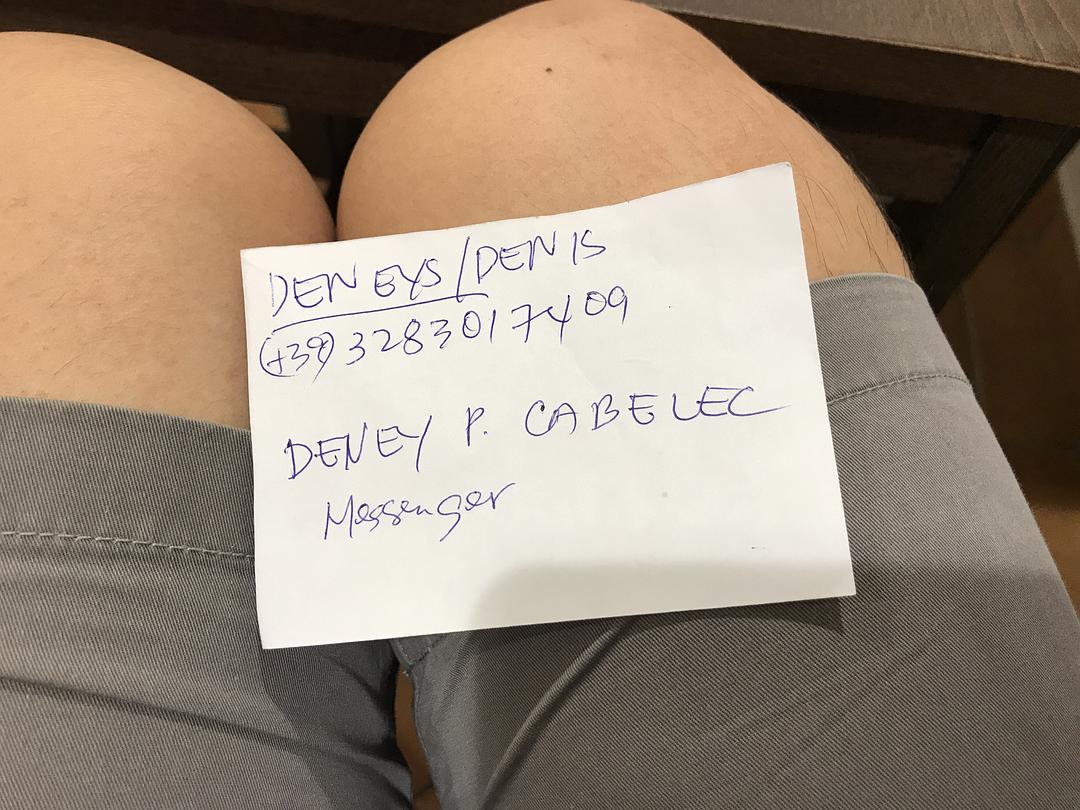 DENEYS/DENIS
(+39) 3283017409
DENEY P. CABELEC
Messenger